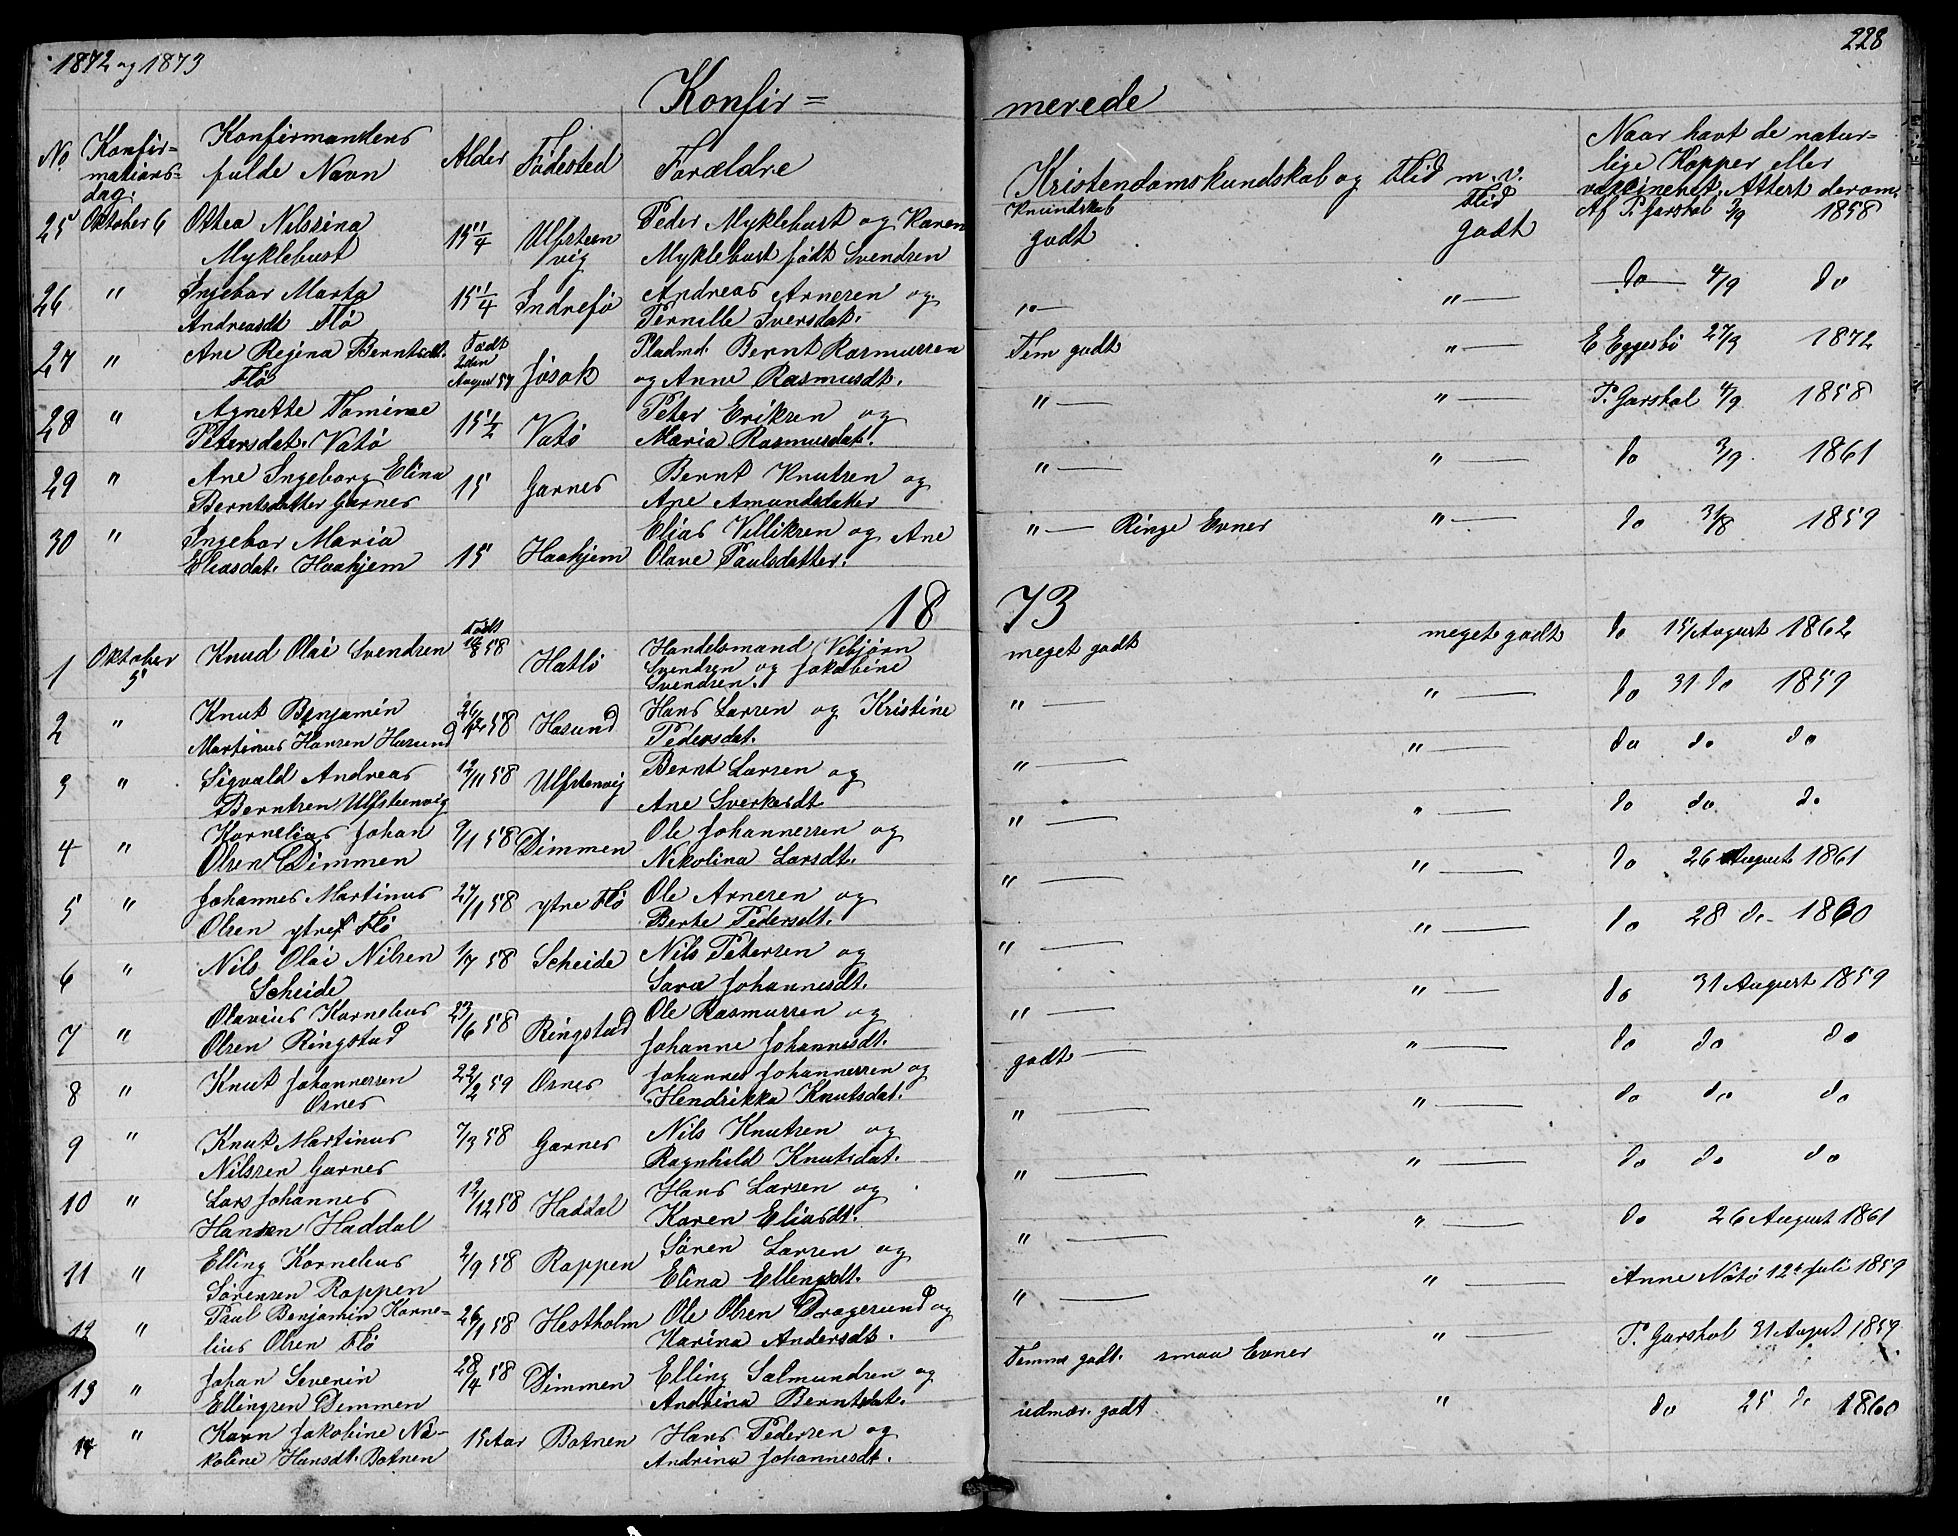 1872 og 1873
228
Konfir=
merede
No. Konfir=mations=dag. Konfirmandens fulde Navn Alder Fødested Forældre Kristendomskundskab og Flid m. v. Naar havt de naturlige Kopper eller vaccineret. Attest derom.
Kundskab Flid
25 Oktober 6 Oltea Nilssina Myklebust 15 11/4 Ulfsteenvig Peder Myklebust og Karen Myklebust født Svendsen godt godt Af P. Garshol 3/9 1858
26 " Ingebor Marta Andreasdt Flø 15 1/4 Indreflø Andreas Arnesen og Pernille Iversdat. " " do 4/9 do
27 " Ane Regina Berntsdt. Flø Født August 57 Josok Pladsmd. Bernt Rasmussen og Anne Rasmusdt. Tem godt " E Eggesbø 27/9 1872
28 " Agnette Tomine Petersdat. Vatø 15 1/2 Vatø Peter Eriksen og Maria Rasmusdat. " " P. Garshol 4/9 1858
29 " Ane Ingeborg Elina Berntsdatter Garnes 15 Garnes Bernt Knutsen og Ane Amundsdatter " " do 3/9 1861
30 " Ingebor Maria Eliasdat. Haahjem 15 Haahjem Elias Villiksen og Ane Olave Paulsdatter. " Ringe Evner " do 31/8 1859
18 73
1 Oktober 5 Knud Olai Svendsen Født 18/8 58 Hatlø Handelsmand Vebjørn Svendsen og Jakobine Svendsen. meget godt meget godt do 15 August 1862
2 " Knut Benjamin Martinus Hansen Hasund 26/12 58 Hasund Hans Larsen og Kristine Pedersdat. " " do 31 do 1859
3 " Sigvald Andreas Berntsen Ulfsteenvig 12/11 58 Ulfstenvig Bernt Larsen og Ane Sverkesdt " " do do do
4 " Kornelius Johan Olsen Dimmen 9/1 58 Dimmen Ole Johannessen og Nikolina Larsdt. " " do do do
5 " Johannes Martinus Olsen ytre Flø 27/1 58 ytre Flø Ole Arnesen og Berte Pedersdt. " " do 26 August 1861
6 " Nils Olai Nilsen Scheide 1/7 58 Scheide Nils Petersen og Sara Johannesdt. " " do 28 do 1860
7 " Olavius Kornelius Olsen Ringstad 23/6 58 Ringstad Ole Rasmussen og Johanne Johannesdt. " " do 31 August 1859
8 " Knut Johannessen Osnes 22/2 59 Osnes Johannes Johannessen og Hendrikka Knutsdat. godt " do do do
9 " Knut Martinus Nilssen Garnes 7/3 58 Garnes Nils Knutsen og Ragnhild Knutsdat. " " do do do
10 " Lars Johannes Hansen Haddal 12/12 58 Haddal Hans Larsen og Karen Eliasdt. " " do do do
11 " Elling Kornelius Sørensen Røppen 2/9 58 Røppen Søren Larsen og Elina Ellingsdt. " " do 26 August 1861
12 " Paul Benjamin Kornelius Olsen Flø 26/1 58 Hestholm Ole Olsen Dragesund og Karina Andersdt. " " Anne Nätø 12te Juli 1859
13 " Johan Severin Ellingsen Dimmen 28/4 58 Dimmen Elling Salmundsen og Andrina Berntsdat. Temme godt. smaa Evner " P. Garshol 31 August 1859
14 " Karn Jakobine Nikoline Hansdt. Botnen 15 Aar Botnen Hans Pedersen og Andrina Johannesdt. udmær. godt " do 25 do 1860